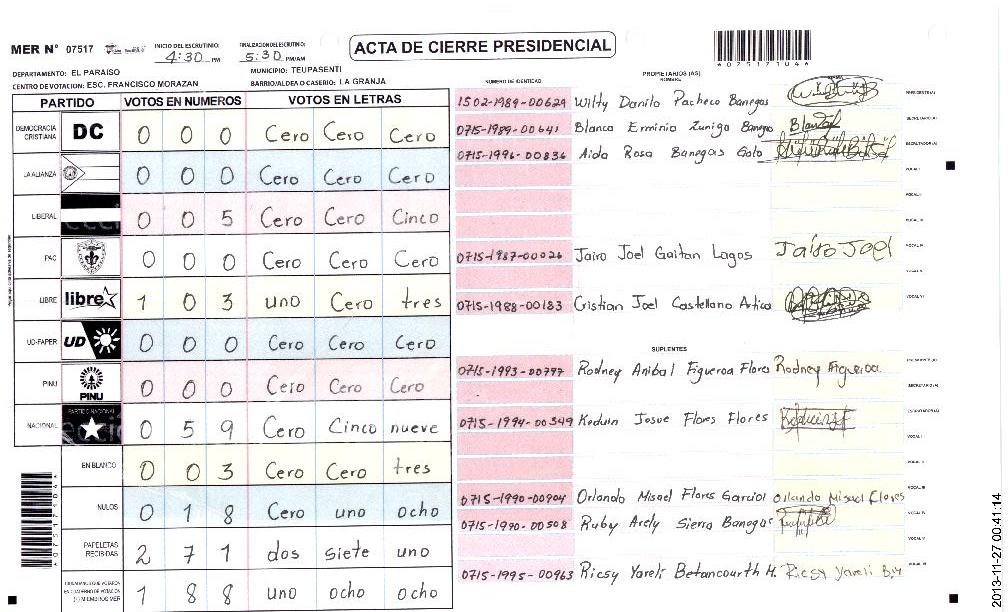 MER N° 07517
INICIO DEL ESCRUTINIO: 4:30 PM
FINALIZACION DEL ESCRUTINIO: 5:30 PM/AM
ACTA DE CIERRE PRESIDENCIAL
DEPARTAMENTO: EL PARAISO
MUNICIPIO: TEUPASENTI
CENTRO DE VOTACION: ESC. FRANCISCO MORAZAN
BARRIO/ALDEA O CASERIO: LA GRANJA
PARTIDO VOTOS EN NUMEROS VOTOS EN LETRAS
DEMOCRACIA CRISTIANA DC 0 0 0 Cero Cero Cero
LA ALIANZA 0 0 0 Cero Cero Cero
LIBERAL 0 0 5 Cero Cero Cinco
PAC 0 0 0 Cero Cero Cero
LIBRE libre 1 0 3 uno Cero tres
UD-FAPER UD 0 0 0 Cero Cero Cero
PINU PINU 0 0 0 Cero Cero Cero
NACIONAL PARTIDO NACIONAL 0 5 9 Cero Cinco nueve
EN BLANCO 0 0 3 Cero Cero tres
NULOS 0 1 8 Cero uno ocho
PAPELETAS RECIBIDAS 2 7 1 dos siete uno
1 8 8 uno ocho ocho
NUMERO DE IDENTIDAD
PROPIETARIOS (AS)
NOMBRE
1502-1989-00629 Wilty Danilo Pacheco Banegas
0715-1989-00641 Blanca Erminia Zuniga Banegas
0715-1996-00836 Aida Rosa Banegas Goto
0715-1987-00026 Jairo Joel Gaitan Lagos Jairo Joel
0715-1988-00183 Cristian Joel Castellano Artica
SUPLENTES
0715-1993-00777 Rodney Anibal Figueroa Flores Rodney Figueroa
0715-1994-00349 Keduin Josue Flores Flores
0715-1990-00904 Orlando Misael Flores Garcia Orlando Misael Flores
0715-1990-00508 Ruby Arely Sierra Banegas
0715-1995-00963 Ricsy Yareli Betancourth M. Ricsy Yareli
2013-11-27 00:41:14